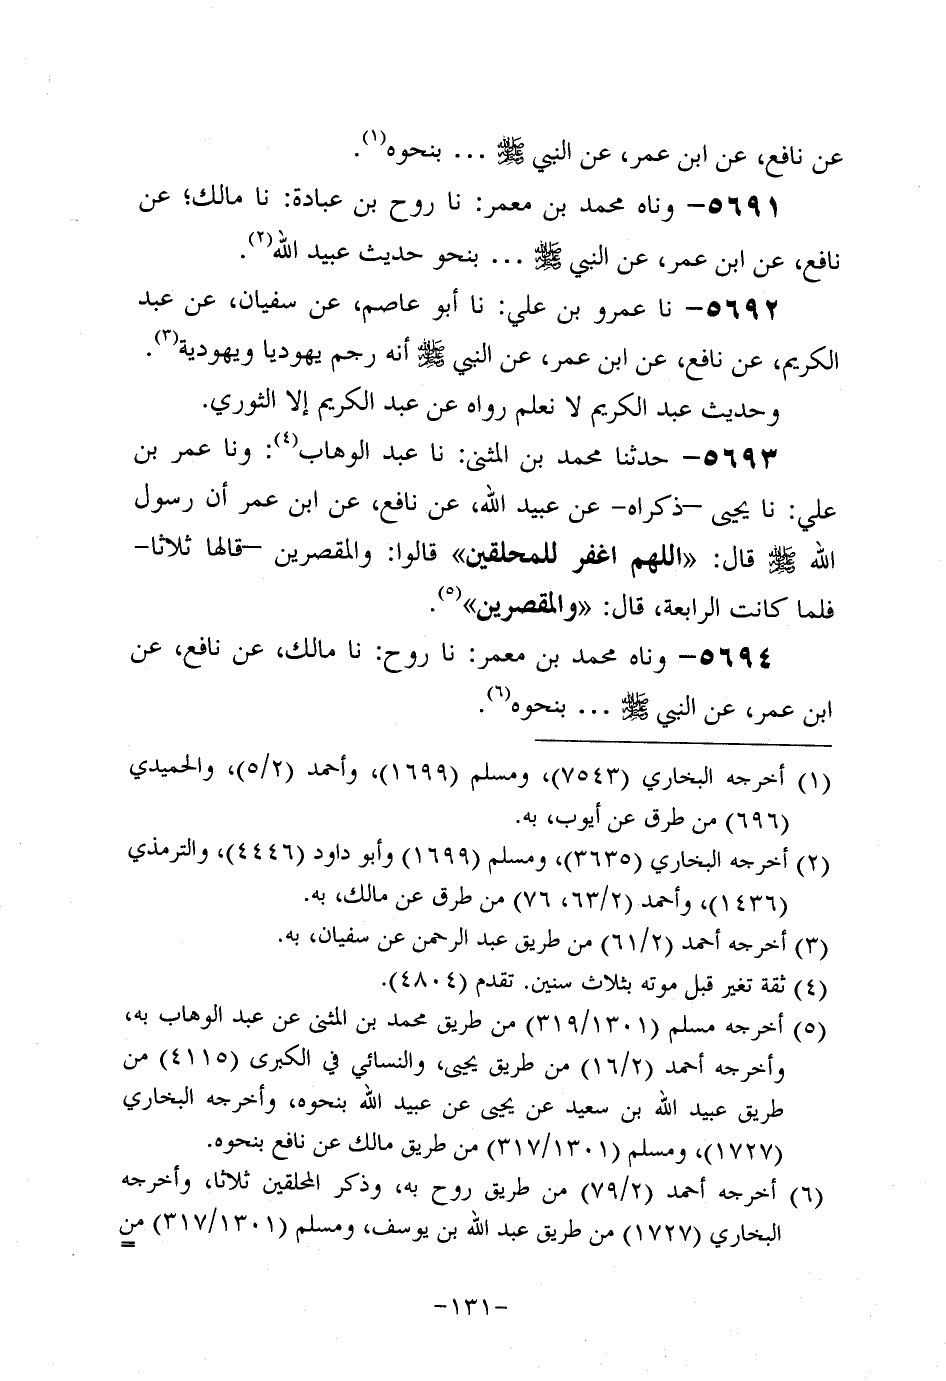 عن نافع، عن ابن عمر، عن النبي ﷺ ... بنحوه(١).
٥٦٩١- وناه محمد بن معمر: نا روح بن عبادة: نا مالك؛ عن
نافع، عن ابن عمر، عن النبي ﷺ ... بنحو حديث عبيد الله(٢).
٥٦٩٢- نا عمرو بن علي: نا أبو عاصم، عن سفيان، عن عبد
الكريم، عن نافع، عن ابن عمر، عن النبي ﷺ أنه رجم يهوديا ويهودية(٣).
وحديث عبد الكريم لا نعلم رواه عن عبد الكريم إلا الثوري.
٥٦٩٣- حدثنا محمد بن المثنى: نا عبد الوهاب(٤): ونا عمر بن
علي: نا يحيى -ذكراه- عن عبيد الله، عن نافع، عن ابن عمر أن رسول
الله ﷺ قال: «اللهم اغفر للمحلقين» قالوا: والمقصرين -قالها ثلاثا-
فلما كانت الرابعة، قال: «والمقصرين»(٥).
٥٦٩٤- وناه محمد بن معمر: نا روح: نا مالك، عن نافع، عن
ابن عمر، عن النبي ﷺ ... بنحوه(٦).
(١) أخرجه البخاري (٧٥٤٣)، ومسلم (١٦٩٩)، وأحمد (٥/٢)، والحميدي
(٦٩٦) من طرق عن أيوب، به.
(٢) أخرجه البخاري (٣٦٣٥)، ومسلم (١٦٩٩) وأبو داود (٤٤٤٦)، والترمذي
(١٤٣٦)، وأحمد (٦٣/٢، ٧٦) من طرق عن مالك، به.
(٣) أخرجه أحمد (٦١/٢) من طريق عبد الرحمن عن سفيان، به.
(٤) ثقة تغير قبل موته بثلاث سنين. تقدم (٤٨٠٤).
(٥) أخرجه مسلم (٣١٩/١٣٠١) من طريق محمد بن المثنى عن عبد الوهاب به،
وأخرجه أحمد (١٦/٢) من طريق يحيى، والنسائي في الكبرى (٤١١٥) من
طريق عبيد الله بن سعيد عن يحيى عن عبيد الله بنحوه، وأخرجه البخاري
(١٧٢٧)، ومسلم (٣١٧/١٣٠١) من طريق مالك عن نافع بنحوه.
(٦) أخرجه أحمد (٧٩/٢) من طريق روح به، وذكر المحلقين ثلاثا، وأخرجه
البخاري (١٧٢٧) من طريق عبد الله بن يوسف، ومسلم (٣١٧/١٣٠١) من
=
-١٣١-